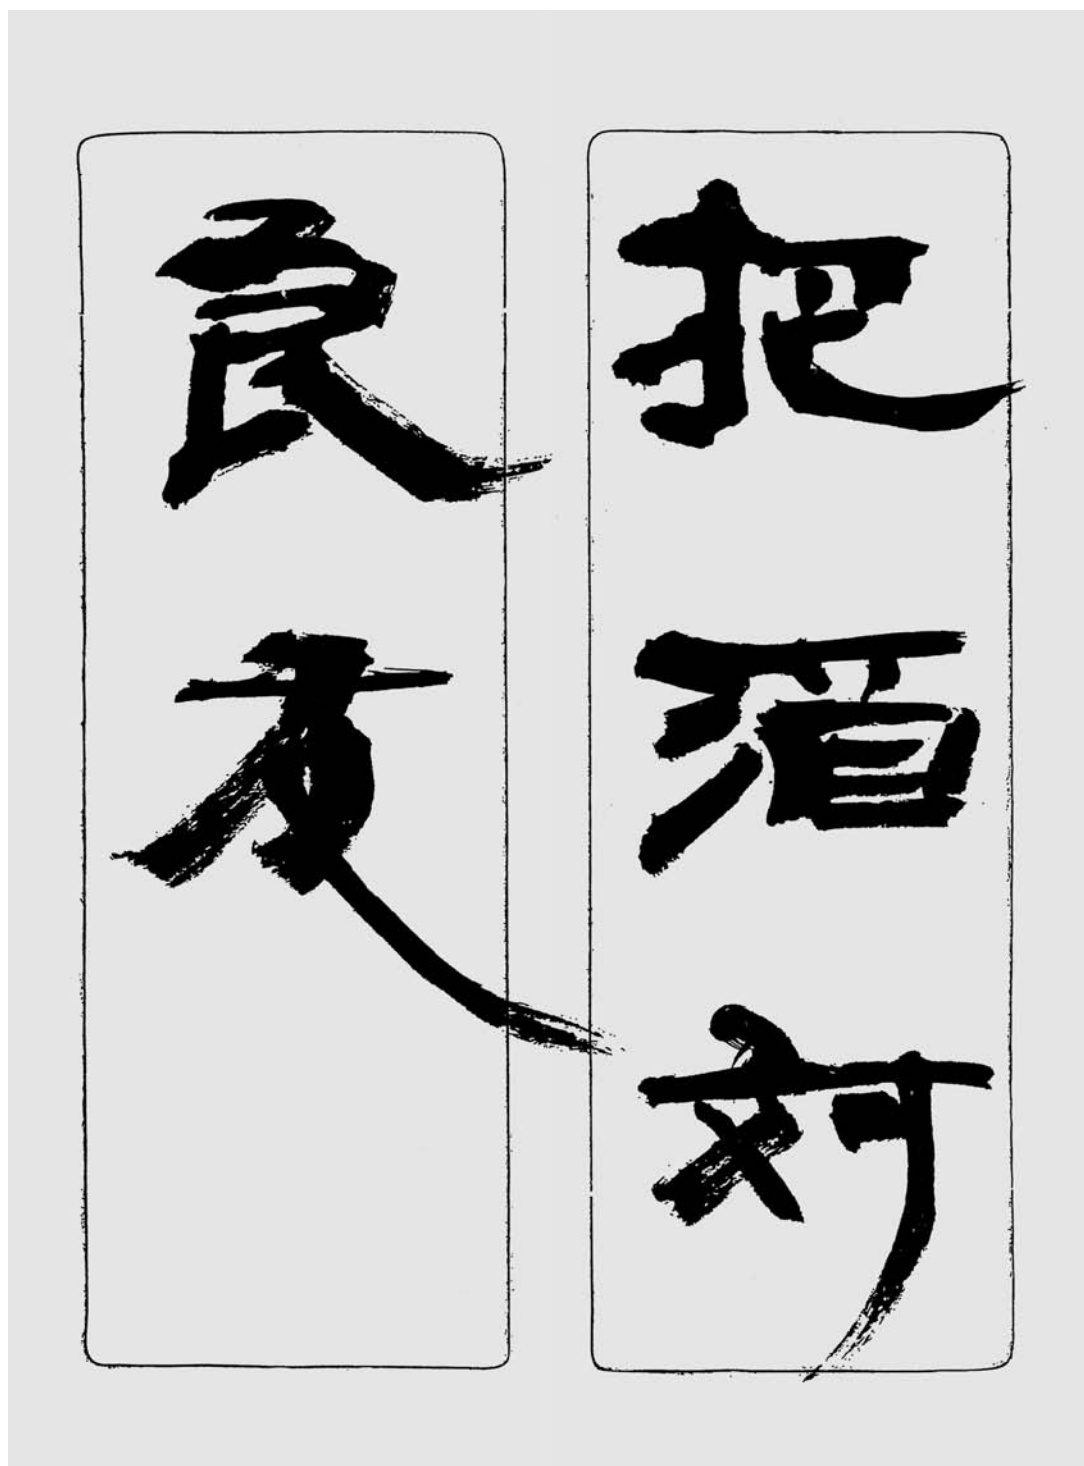 把酒対
良友